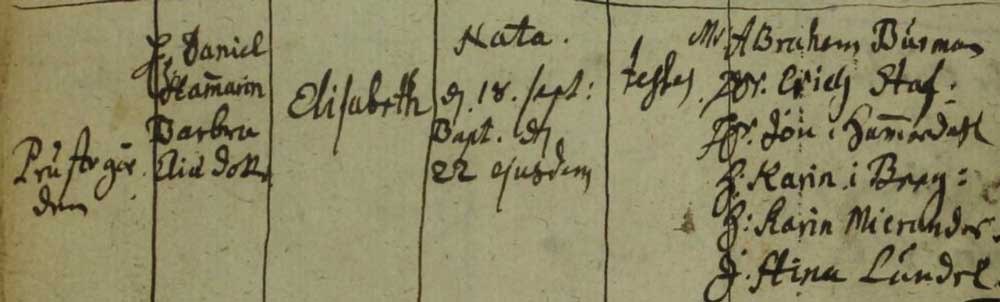 Prüstgår
den
H. Daniel
Hamarin
Barbru
Elisabeth
Nata.
d. 18. sept:
Bapt. d.
22 ejusdem
testes
Mr Abraham Burman
Hr. Erich Staf:
Hr. Jon i Hammerdahl
H: Karin i Berg:
H: Karin
J. Stina Lundel